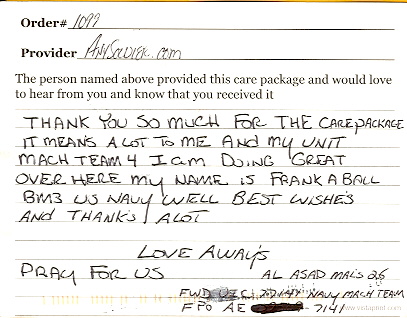 Order# 1099
Provider AnySoldier.com
The person named above provided this care package and would love
to hear from you and know that you received it
THANK YOU SO MUCH FOR THE CAREPACKAGE
IT MEANS A LOT TO ME AND MY UNIT
MACH TEAM 4 I am DOING GREAT
OVER HERE MY NAME IS FRANK A BALL
BM3 US NAVY WELL BEST WISHE'S
AND THANK'S A LOT
LOVE AWAY'S
PRAY FOR US
AL ASAD MAL'S 26
FWD NAVY MACH TEAM
FPO AE 7141
www.vistaprint.com